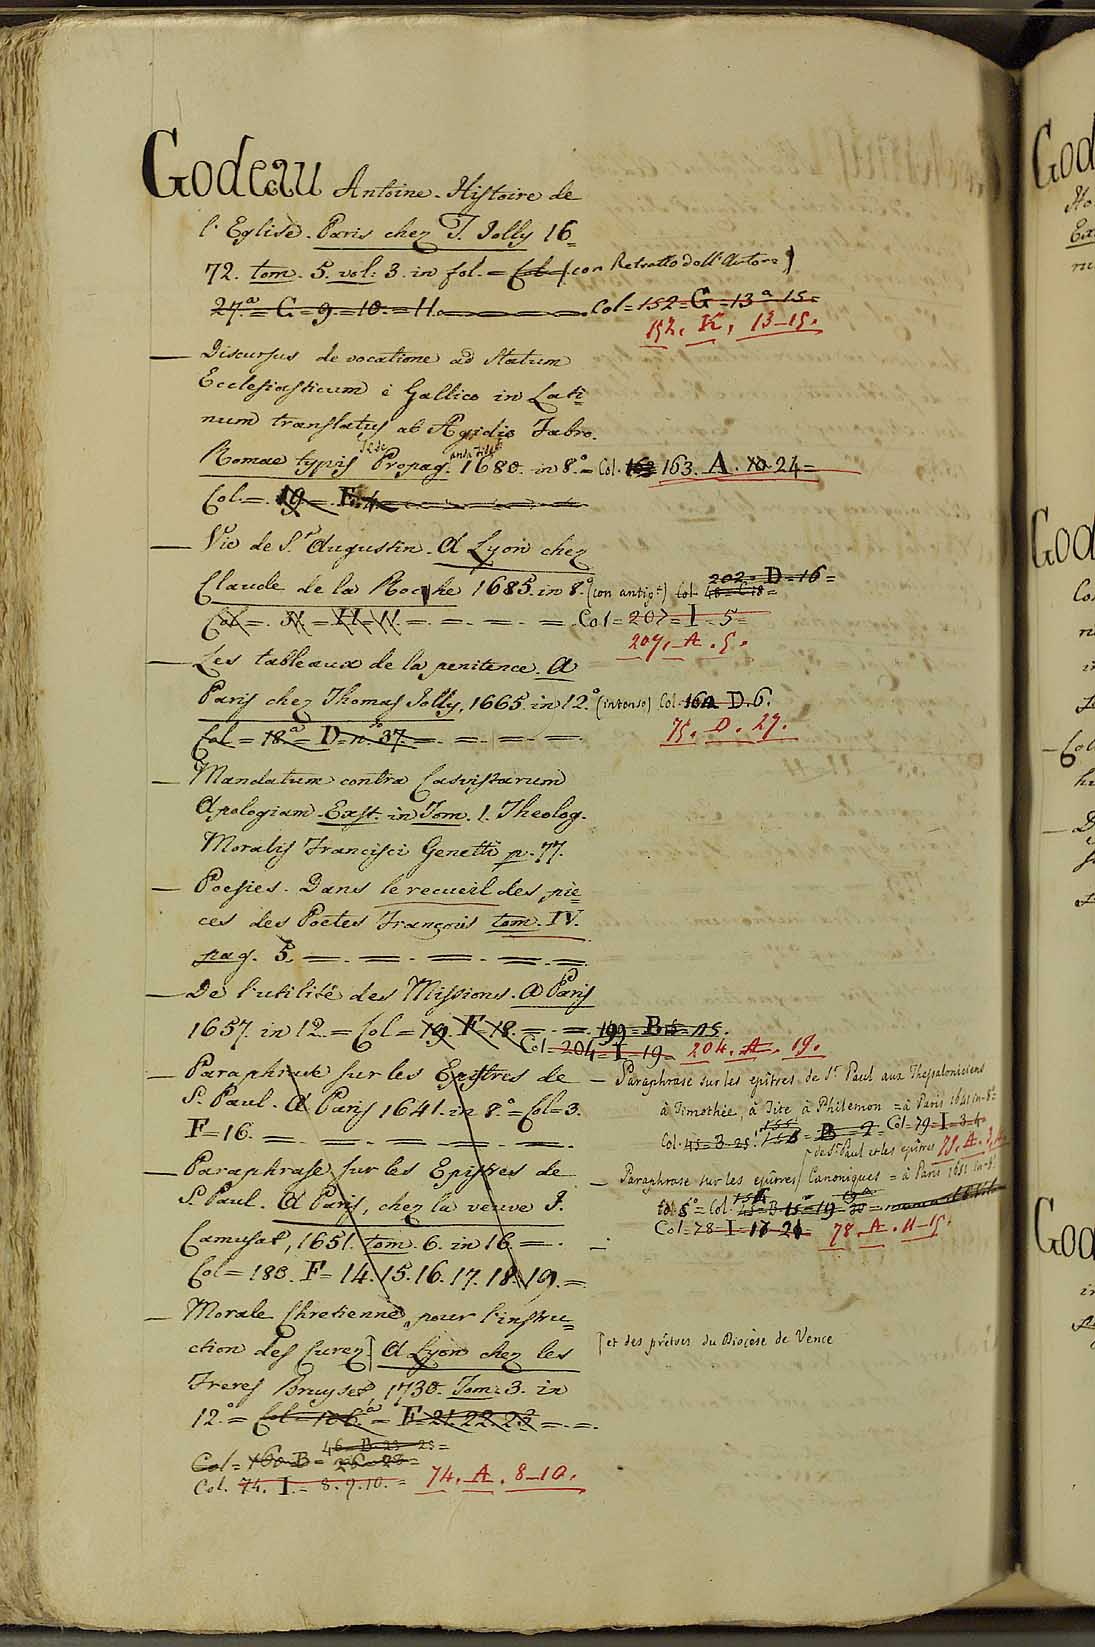 Godeau Antoine. Histoire de
l'Eglise. Paris chez T. Jolly 16=
72. tom. 5. vol: 3. in fol. = Col. (con Retratto dell'Autore)
27.ª = C = 9 = 10 = 11. Col = 152 = G = 13 ª 15 =
152. K. 13-15.
— Discursus de vocatione ad Statum
Ecclesiasticum è Gallico in Lati=
num translatus ab Ægidio Fabro.
Romae typis Propag. 1680. in 8.º = Col. 163. A. 24 =
Col. = 19 = F. 4
— Vie de S.t Augustin. A Lyon chez
202 = D = 16 =
Claude de la Roche 1685. in 8.º (con antip.ª) Col.
Col = Col = 207 = I = 5 =
207. A. 5.
— Les tableaux de la penitence. A
Paris chez Thomas Jolly, 1665. in 12.º (intonso) Col. D. 6.
Col = 18.ª = D = n.º 37. =
75. D. 27.
— Mandatum contra Casuistarum
Apologiam. Exst. in Tom. 1. Theolog.
Moralis Francisci Genetti p. 77.
— Poesies. Dans le recueil des pie=
ces des Poetes François tom. IV.
pag. 5.
— De l'utilité des Missions. A Paris
1657. in 12. = Col = 19. F = 18. = 199 = B = 15.
Col. 204 = I. 19. 204. A. 19.
— Paraphrase sur les Epistres de
S. Paul. A Paris 1641. in 8.º = Col = 3.
F = 16.
— Paraphrase sur les Epistres de
S. Paul. A Paris, chez la veuve J.
Camusat, 1651. tom. 6. in 16 =
Col = 180. F = 14. 15. 16. 17. 18. 19. =
— Paraphrase sur les epîtres de S.t Paul aux Thessaloniciens
à Timothée, à Tite à Philemon = à Paris 1641 in-8º
Col. 45 = B. 25. = B = 9 = Col = 79 = I = 3-4.
de S.t Paul et les epîtres
— Paraphrase sur les epîtres Canoniques = à Paris 1651 in-8º
Col = 78 = I = 21 = 78. A. 11-15.
— Morale Chretienne, pour l'instru=
ction des Curez [ A Lyon chez les [ et des prêtres du Diocèse de Vence
Freres Bruyset, 1730. Tom. 3. in
12.º = Col = 106.ª = F = 21. 22. 23 =
46 = B = 23 25 =
Col = 160 B =
Col. 74. I. = 8. 9. 10. = 74. A. 8-10.